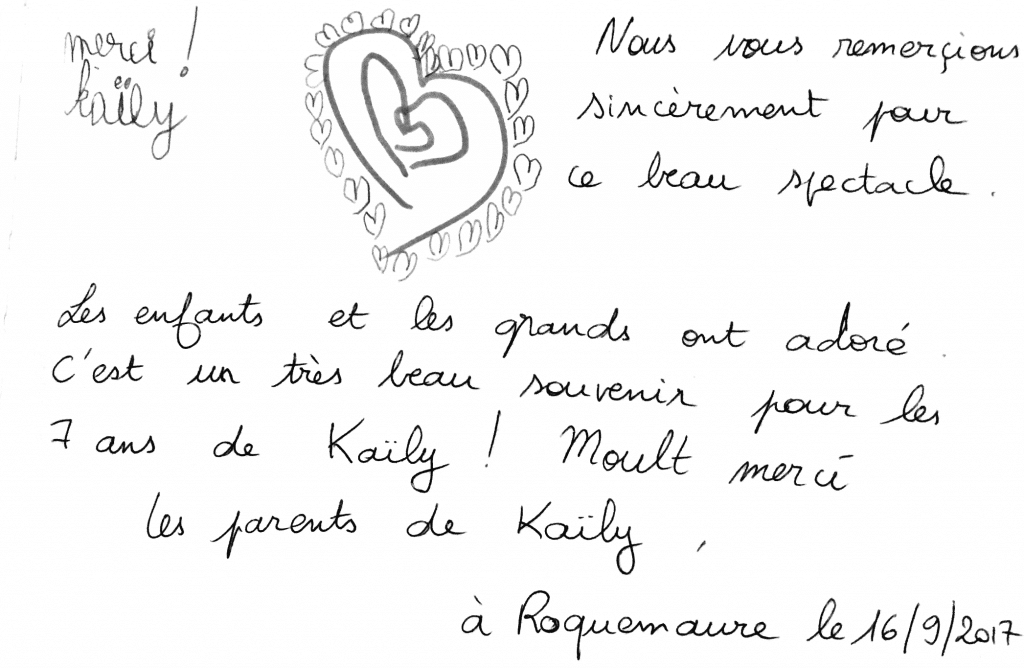 merci !
kaïly
Nous vous remerçions
sincèrement pour
ce beau spectacle.
Les enfants et les grands ont adoré.
C'est un très beau souvenir pour les
7 ans de Kaïly ! Moult merci
les parents de Kaïly,
à Roquemaure le 16/9/2017